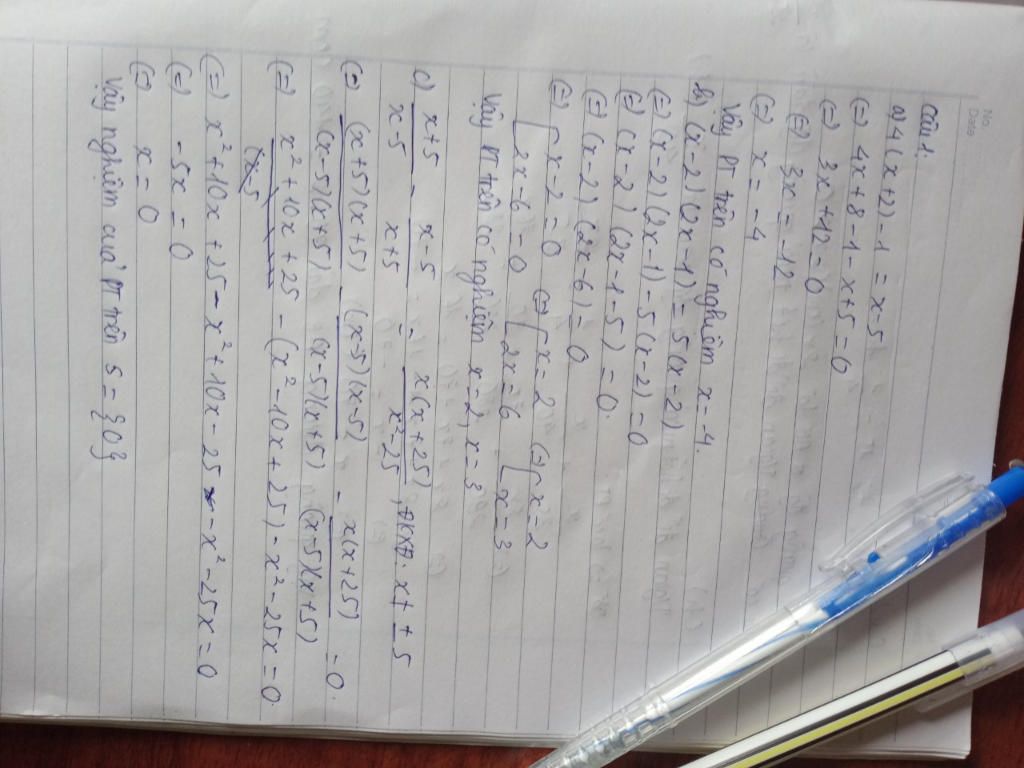 No.
Date
Câu 1:
a) 4(x+2)-1 = x-5
(=) 4x+8-1-x+5=0
(=) 3x+12=0
(=) 3x=-12
(=) x=-4
Vậy PT trên có nghiệm x=-4.
b) (x-2)(2x-1)=5(x-2)
(=) (x-2)(2x-1)-5(x-2)=0
(=) (x-2)(2x-1-5)=0.
(=) (x-2)(2x-6)=0
(=) [x-2=0 (=) [x=2 (=) [x=2
[2x-6=0 [2x=6 [x=3
Vậy PT trên có nghiệm x=2, x=3
c) x+5/x-5 - x-5/x+5 = x(x+25)/x²-25, ĐKXĐ: x≠±5
(=) (x+5)(x+5)/(x-5)(x+5) - (x-5)(x-5)/(x-5)(x+5) - x(x+25)/(x-5)(x+5) =0.
(=) x²+10x+25-(x²-10x+25)-x²-25x=0
(=) x²+10x+25-x²+10x-25-x²-25x=0
(=) -5x=0
(=) x=0
Vậy nghiệm của PT trên S={0}